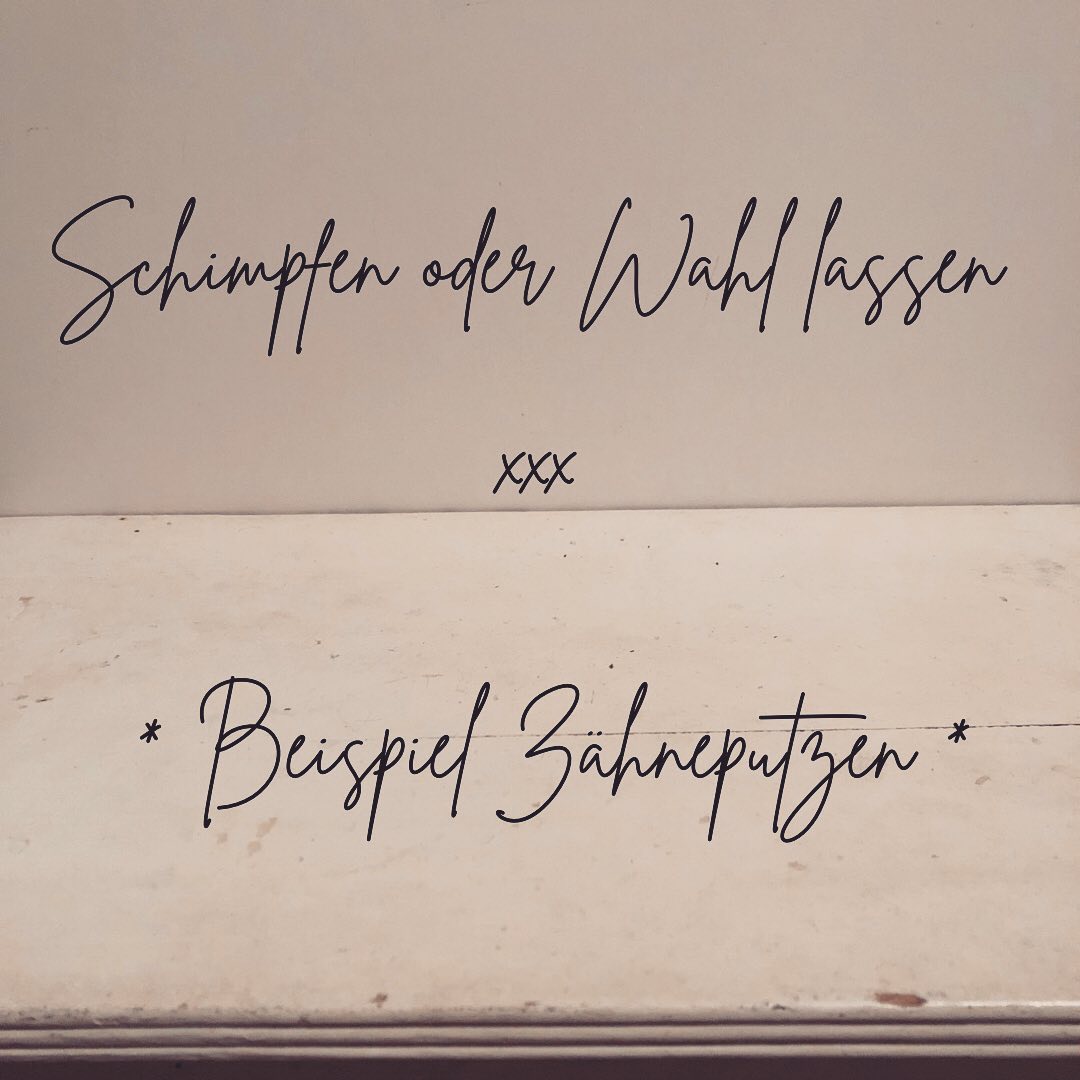 Schimpfen oder Wahl lassen
xxx
* Beispiel Zähneputzen *